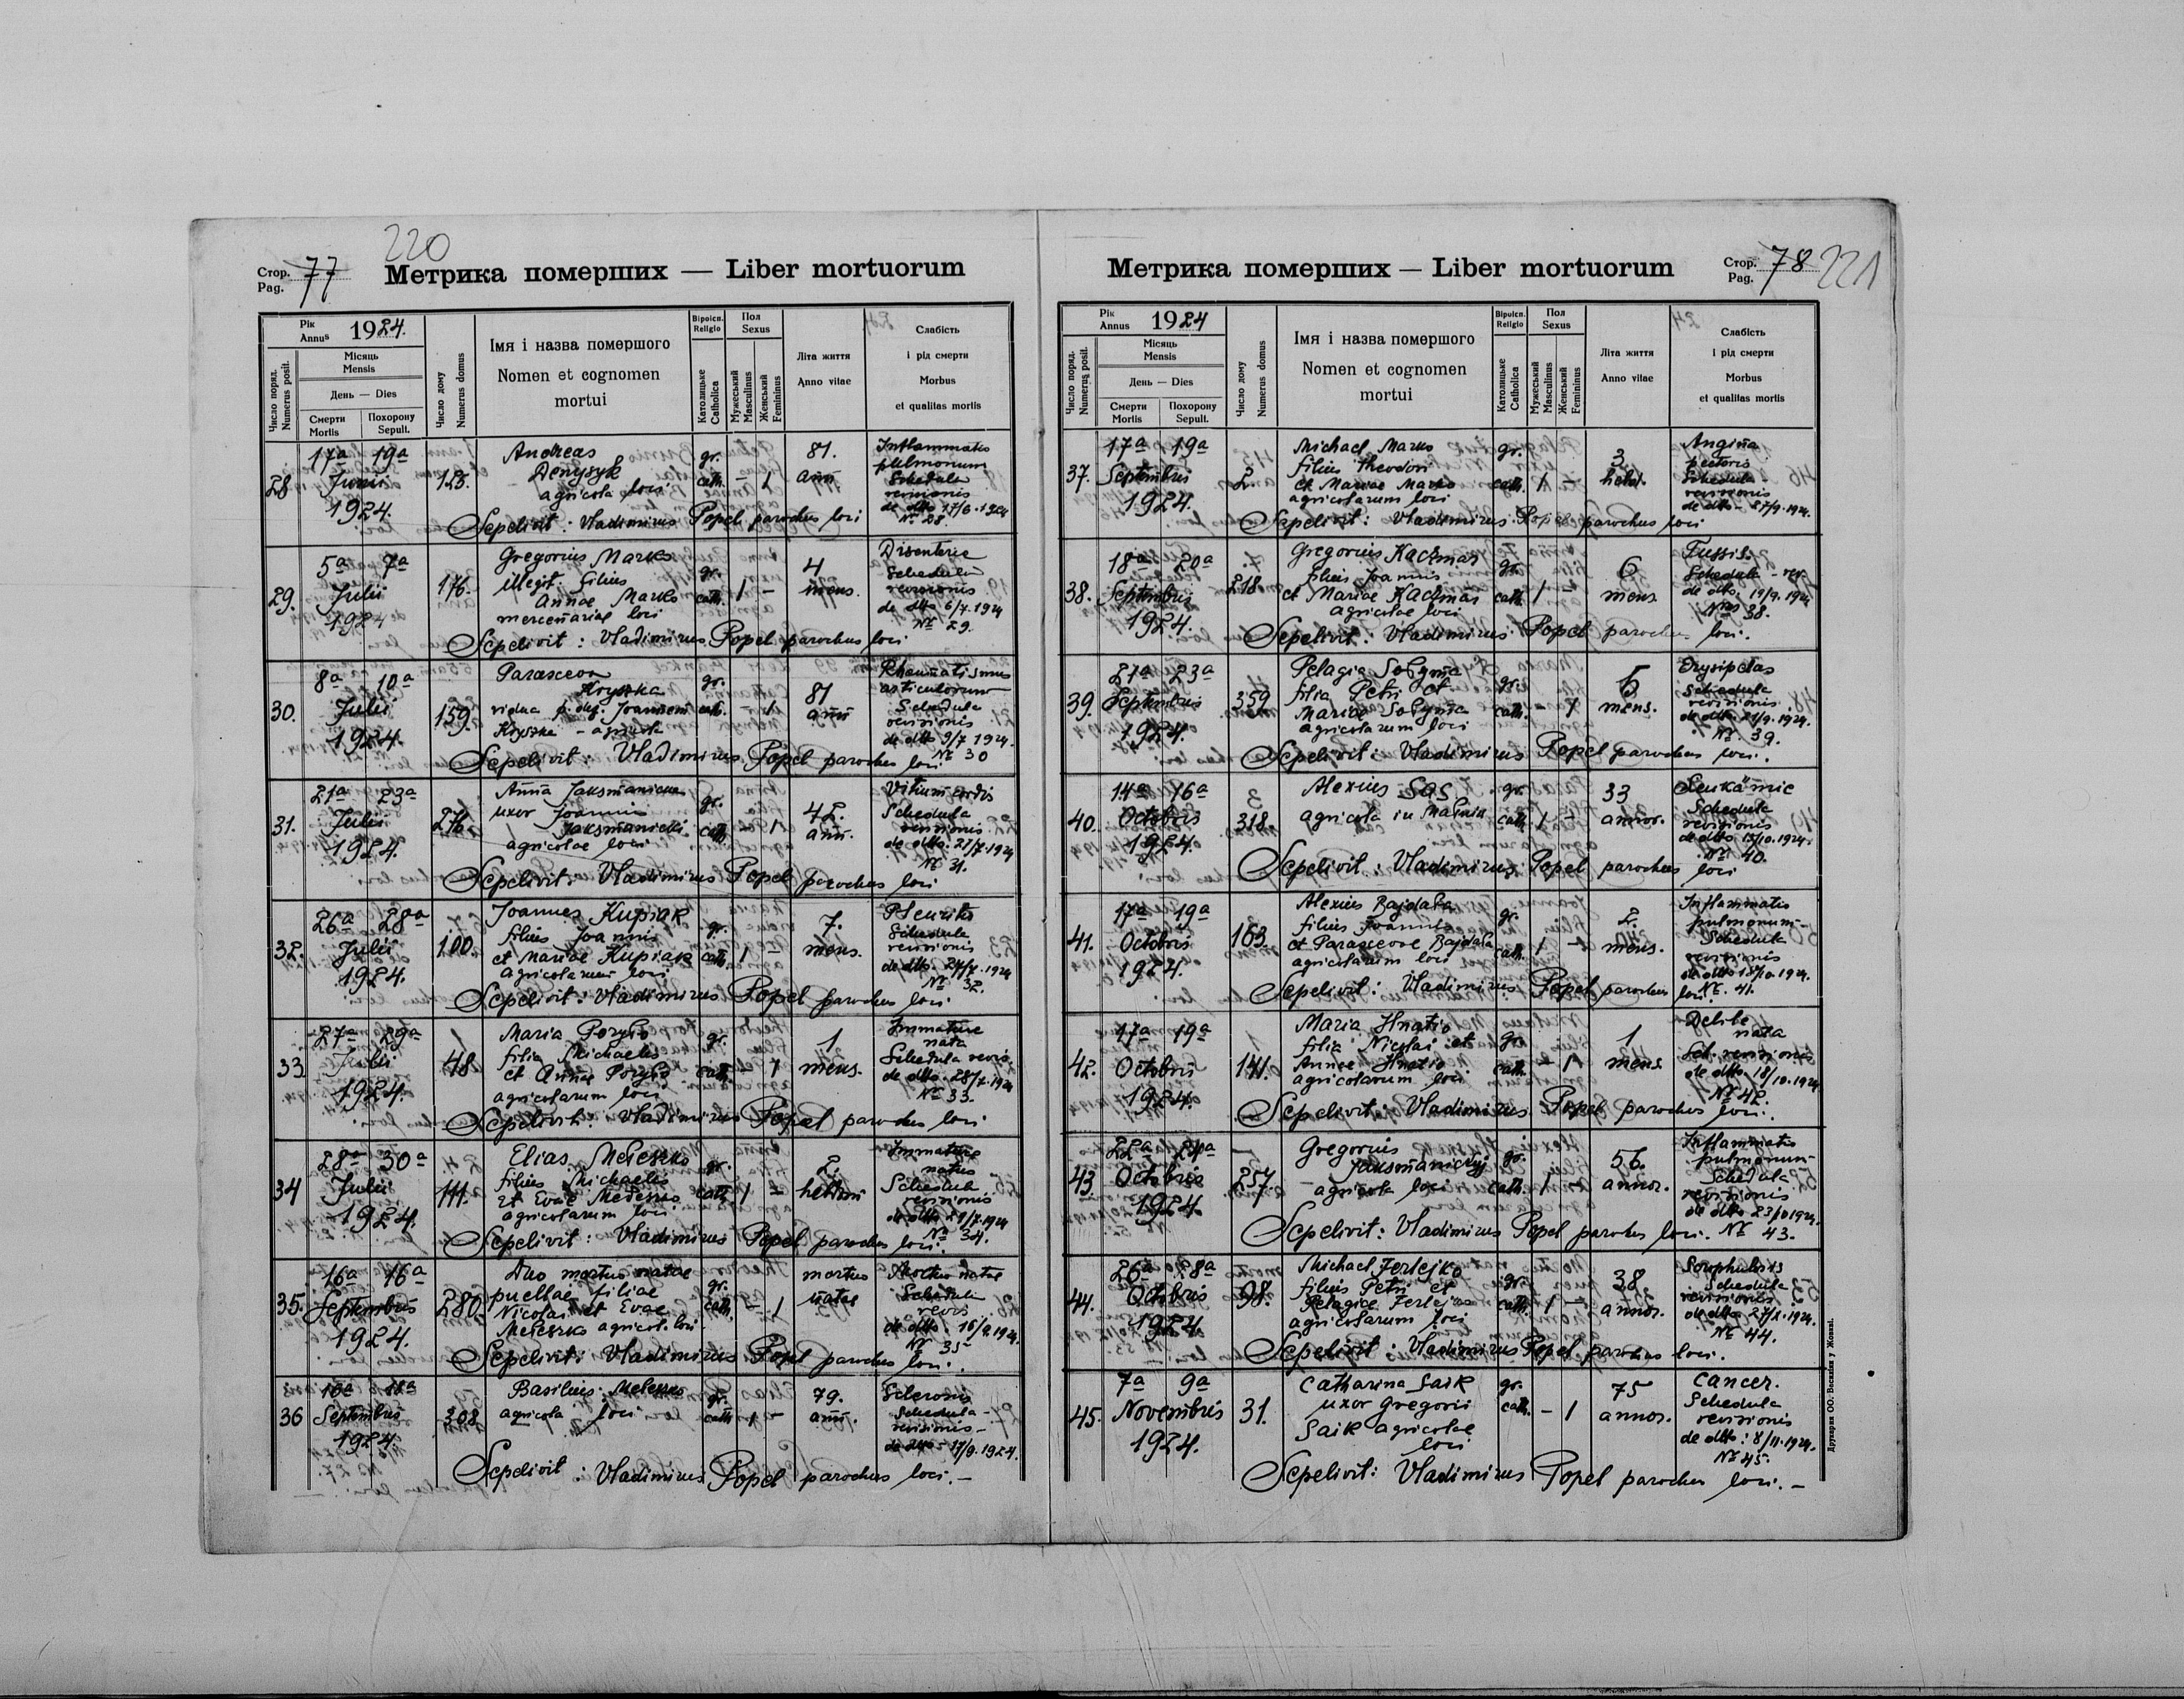 220
Стор. Pag. 77
Метрика померших — Liber mortuorum
Рік Annus 1924.
Число поряд. Numerus posit.
Місяць Mensis
День — Dies
Смерти Mortis
Похорону Sepult.
Число дому Numerus domus
Імя і назва помершого
Nomen et cognomen
mortui
Віроісп. Religio
Католицьке Catholica
Пол Sexus
Мужеський Masculinus
Женський Femininus
Літа життя
Anno vitae
Слабість
і рід смерти
Morbus
et qualitas mortis
28 17a 19a Junii 1924. 128.
Andreas
Denysyk
agricola loci
gr. cath. – 1
81. ann
Inflammatio
pulmonum
Schedula
revisionis
de dtto 17/6. 1924
No 28.
Sepelivit: Vladimirus Popel parochus loci
29. 5a 7a Julii 1924 176.
Gregorius Marko
illegit. filius
Annae Marko
mercenariae loci
gr. cath. 1 –
4 mens.
Disenterie
Schedula
revisionis
de dtto 6/7. 1924
No 29.
Sepelivit: Vladimirus Popel parochus loci
30. 8a 10a Julii 1924. 159.
Parasceva
Kryszka
vidua p. def. Joannem
Kryszka – agricola
gr. cath. – 1
81 ann
Rheumatismus
articulorum
Schedula
revisionis
de dtto 9/7 1924.
No 30
Sepelivit: Vladimirus Popel parochus loci
31. 21a 23a Julii 1924. 276.
Anna Jaksmanicka
uxor Joannis
Jaksmanicki
agricolae loci
gr. cath. – 1
42. ann.
Vitium cordis
Schedula
revisionis
de dtto. 22/7. 1924
No 31.
Sepelivit: Vladimirus Popel parochus loci
32. 26a 28a Julii 1924. 100.
Joannes Kupiak
filius Joannis
et Mariae Kupiak
agricolarum loci
gr. cath. 1 –
7. mens.
Pleuritis
Schedula
revisionis
de dtto. 27/7. 1924
No 32.
Sepelivit: Vladimirus Popel parochus loci
33. 27a 29a Julii 1924. 48
filia Michaelis
agricolarum loci
gr. cath. – 1
1 mens.
Immature
nata
Schedula revis.
de dtto. 28/7. 1924
No 33.
Sepelivit: Vladimirus Popel parochus loci
34 28a 30a Julii 1924. 111.
Elias Meleszko
filius Michaelis
et Evae Meleszko
agricolarum loci
gr. cath. 1 –
2.
Immature
natus
Schedula
revisionis
de dtto 29/7. 1924
No 34.
Sepelivit: Vladimirus Popel parochus loci.
35. 16a 16a Septembris 1924. 280.
Duo mortuo natae
puellae filiae
Nicolai et Evae
Meleszko agricol. loci
gr. cath. – 1
mortuo natae
Mortuo natae
Schedula
revis
de dtto. 16/9. 1924.
No 35
Sepelivit: Vladimirus Popel parochus loci.
36 16a 18a Septembris 1924. 308
Basilius Meleszko
agricola loci
gr. cath 1 –
79. ann.
Sclerosis
Schedula –
revisionis –
de dtto – 17/9. 1924.
Sepelivit: Vladimirus Popel parochus loci. –
Метрика померших — Liber mortuorum
Стор. Pag. 78
221
Рік Annus 1924
Число поряд. Numerus posit.
Місяць Mensis
День — Dies
Смерти Mortis
Похорону Sepult.
Число дому Numerus domus
Імя і назва помершого
Nomen et cognomen
mortui
Віроісп. Religio
Католицьке Catholica
Пол Sexus
Мужеський Masculinus
Женський Femininus
Літа життя
Anno vitae
Слабість
і рід смерти
Morbus
et qualitas mortis
37. 17a 19a Septembris 1924. 2.
Michael Marko
filius Theodori
et Mariae Marko
agricolarum loci
gr. cath. 1 –
3 hebd.
Angina
pectoris
Schedula –
revisionis
Sepelivit: Vladimirus Popel parochus loci
38. 18a 20a Septembris 1924. 218
Gregorius Kaczmar
filius Joannis
et Mariae Kaczmar
agricolae loci
gr. cath 1 –
6 mens
Tussis.
Schedula – rev
de dtto. 19/9. 1924
No 38.
Sepelivit: Vladimirus Popel parochus loci.
39. 21a 23a Septembris 1924. 359
filia Petri et
agricolarum loci
gr. cath. – 1
mens.
Erysipelas
Schedula
revisionis
No 39.
Sepelivit: Vladimirus Popel parochus loci.
40. 14a 16a Octobris 1924. 318.
Alexius Sas
agricola in
gr. cath 1 –
33 annor.
Leukämie
Schedula
revisionis
de dtto 15/10. 1924.
No 40.
Sepelivit: Vladimirus Popel parochus loci
41. 17a 19a Octobris 1924. 163.
Alexius Bajdala
filius Joannis
et Parascevae Bajdala
agricolarum loci
gr. cath. 1 –
2. mens.
Inflammatio
pulmonum –
Schedula
revisionis
de dtto 18/10. 1924.
No. 41.
Sepelivit: Vladimirus Popel parochus loci.
42. 17a 19a Octobris 1924. 141.
Maria Hnatio
filia Nicolai et
Annae Hnatio
agricolarum loci
gr. cath – 1
1 mens.
Debile
nata
Sch. revisionis
de dtto. 18/10. 1924
No 42.
Sepelivit: Vladimirus Popel parochus loci.
43. 22a 24a Octobris 1924. 257
Gregorius
Jaksmanickyj
agricola loci
gr. cath. 1 –
56. annor.
Inflammatio
pulmonum –
Schedula
revisionis
de dtto 23/10 1924.
Sepelivit: Vladimirus Popel parochus loci. No 43.
44. 26a 28a Octobris 1924 98.
Michael Jerlejko
filius Petri et
Pelagiae Jerlejko
agricolarum loci
gr. cath. 1 –
38 annor.
Scrophulosis
Schedula
revisionis
de dtto 27/X. 1924.
No 44.
Sepelivit: Vladimirus Popel parochus loci.
45. 7a 9a Novembris 1924. 31.
Catharina Saik
uxor Gregorii
Saik agricolae
loci
gr. cath. – 1
75 annor.
Cancer.
Schedula
revisionis
de dtto: 8/11. 1924.
No 45.
Sepelivit: Vladimirus Popel parochus loci. –
Друкарня ОО. Василіян у Жовкві.